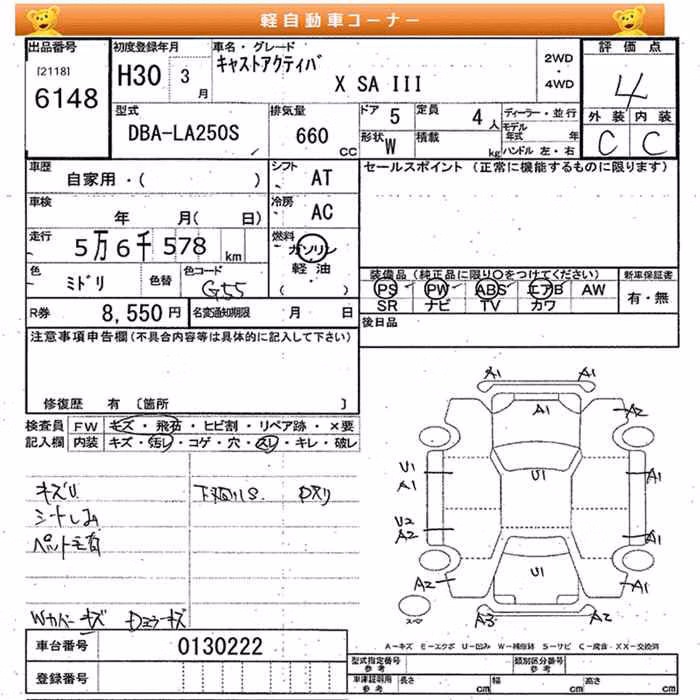 軽自動車コーナー
出品番号 初度登録年月 車名・グレード 2WD・4WD 評価点
[2118] 6148 H30 3月 キャストアクティバ X SA III 4
型式 排気量 ドア 5 定員 4人 ディーラー・並行 外装 内装
DBA-LA250S 660CC 形状 W 積載 kg モデル年式 年 ハンドル 左・右 C C
車歴 シフト セールスポイント (正常に機能するものに限ります)
自家用・( ) AT
車検 冷房
年 月( 日) AC
走行 燃料
5万6千578km ガソリン・軽油・( )
色 色替 色コード 装備品 (純正品に限り○をつけてください) 新車保証書
ミドリ G55 PS PW ABS エアB AW 有・無
SR ナビ TV カワ
R券 8,550円 名変通知期限 月 日 後日品
注意事項申告欄(不具合内容等は具体的に記入して下さい)
修復歴 有 〔箇所 〕
検査員 FW キズ・飛石・ヒビ割・リペア跡・×要
記入欄 内装 キズ・汚レ・コゲ・穴・スレ・キレ・破レ
A1 A1
A1 A2
U1 U1 A1
A1
U2 A1
A2
A2 U1 A1
A3 A2
キズU
シートしみ
ペット毛有
Wカバーキズ ドミラーキズ
A-キズ E-エクボ U-凹み W-補修跡 S-サビ C-腐食・XX-交換済
車台番号 0130222
登録番号
型式指定番号 参考 類別区分番号 参考
車庫証明用 参考 長さ cm 幅 cm 高さ cm